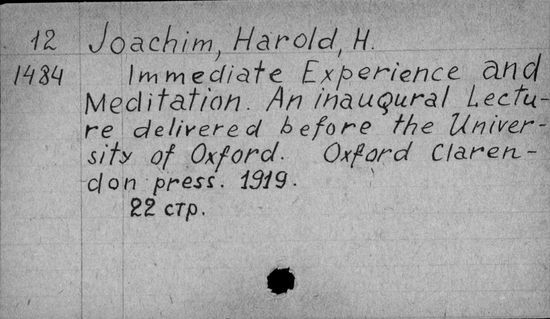 12 Joachim, Harold, H.
1484 Immediate Experience and
Meditation. An inauqural Lectu-
re delivered before the Univer-
sity of Oxford. Oxford Claren-
don press. 1919.
22 стр.